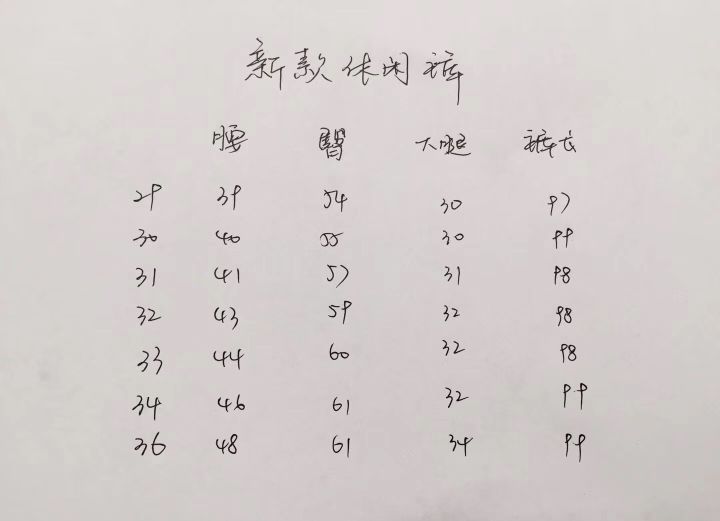 新款休闲裤
腰 臀 大腿 裤长
29 39 54 30 97
30 40 55 30 99
31 41 57 31 98
32 43 59 32 98
33 44 60 32 98
34 46 61 32 99
36 48 61 34 99